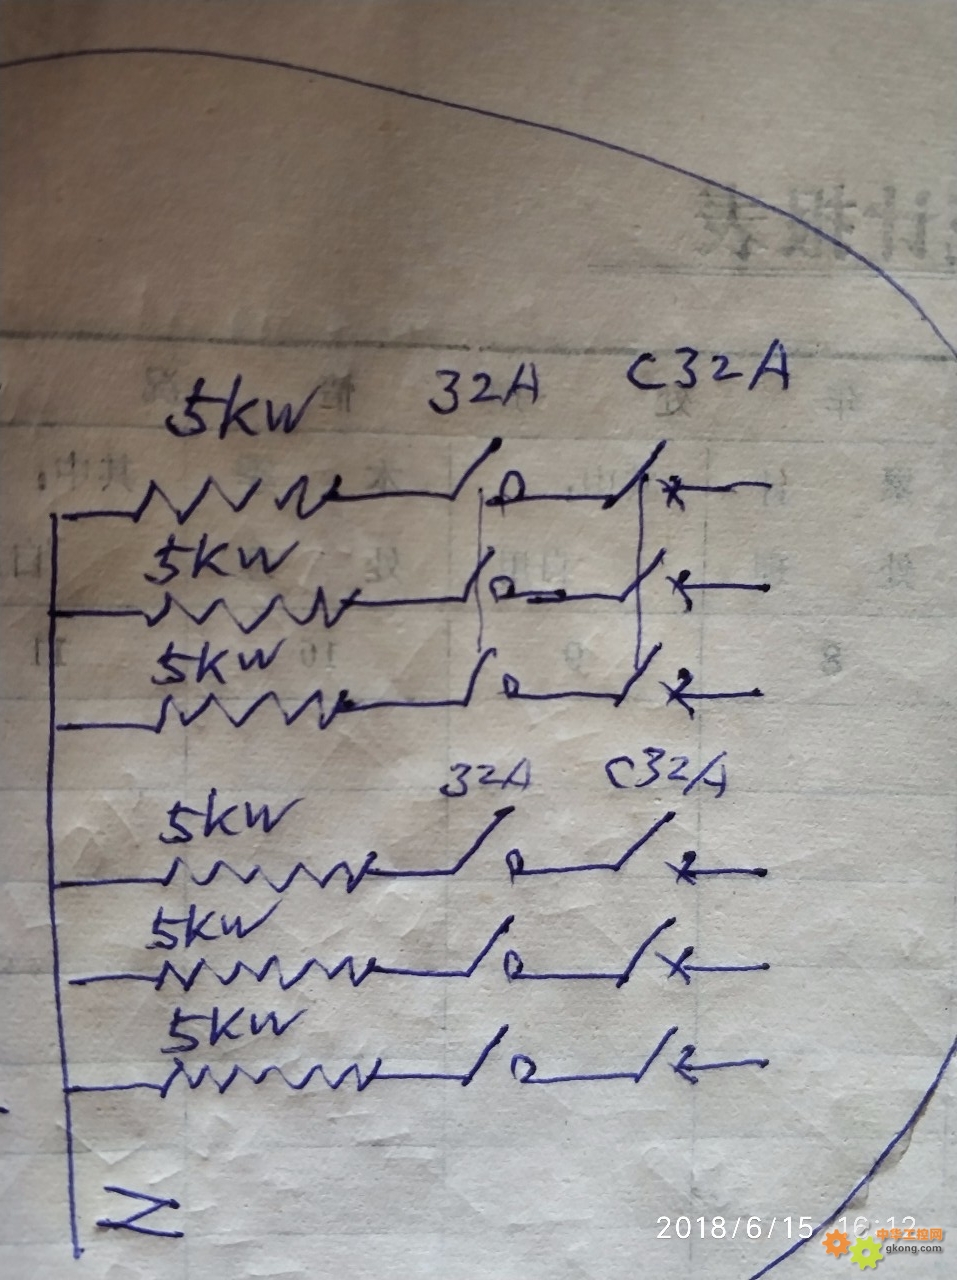 统计报表
5kw 32A C32A
5kw
5kw
32A C32A
5kw
5kw
5kw
N
2018/6/15 16:12
中华工控网
gkong.com